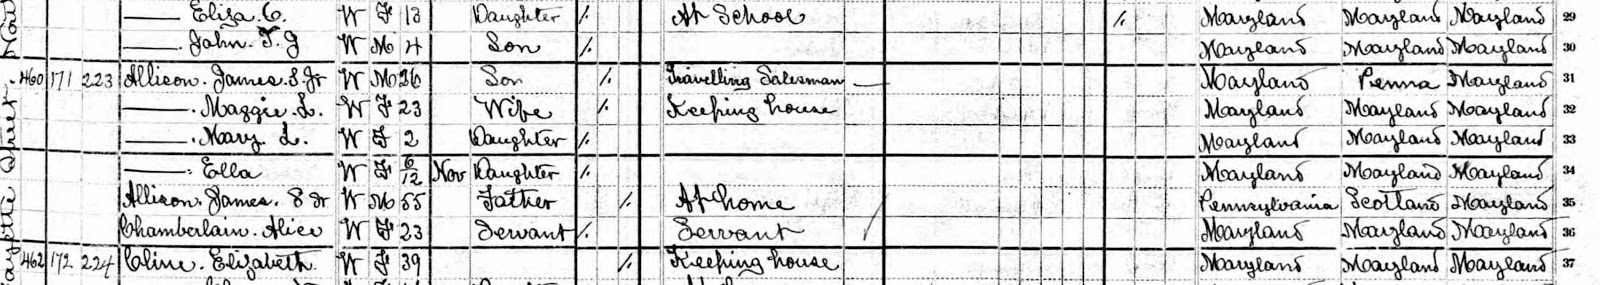 —— Eliza. C. W F 13 Daughter /. At School /. Maryland Maryland Maryland 29
—— . John. T. J W M 4 Son /. Maryland Maryland Maryland 30
460 171 223 Allison. James. S Jr W M 26 Son /. Travelling Salesman — Maryland Penna Maryland 31
—— . Maggie. L. W F 23 Wife /. Keeping house Maryland Maryland Maryland 32
—— . Mary. L. W F 2 Daughter /. Maryland Maryland Maryland 33
—— . Ella W F 6/12 Nov Daughter /. Maryland Maryland Maryland 34
Allison. James. S Sr W M 55 Father /. At home Pennsylvania Scotland Maryland 35
Chamberlain. Alice W F 23 Servant /. Servant / Maryland Maryland Maryland 36
462 172 224 Cline. Elizabeth W F 39 /. Keeping house Maryland Maryland Maryland 37